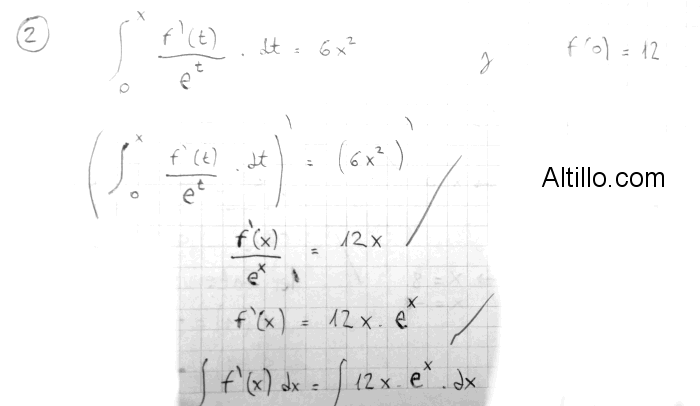 2
∫₀ˣ f'(t)/eᵗ · dt = 6x² y f'(0) = 12
(∫₀ˣ f'(t)/eᵗ · dt)' = (6x²)'
Altillo.com
f'(x)/eˣ = 12x
f'(x) = 12x · eˣ
∫ f'(x) dx = ∫ 12x · eˣ · dx